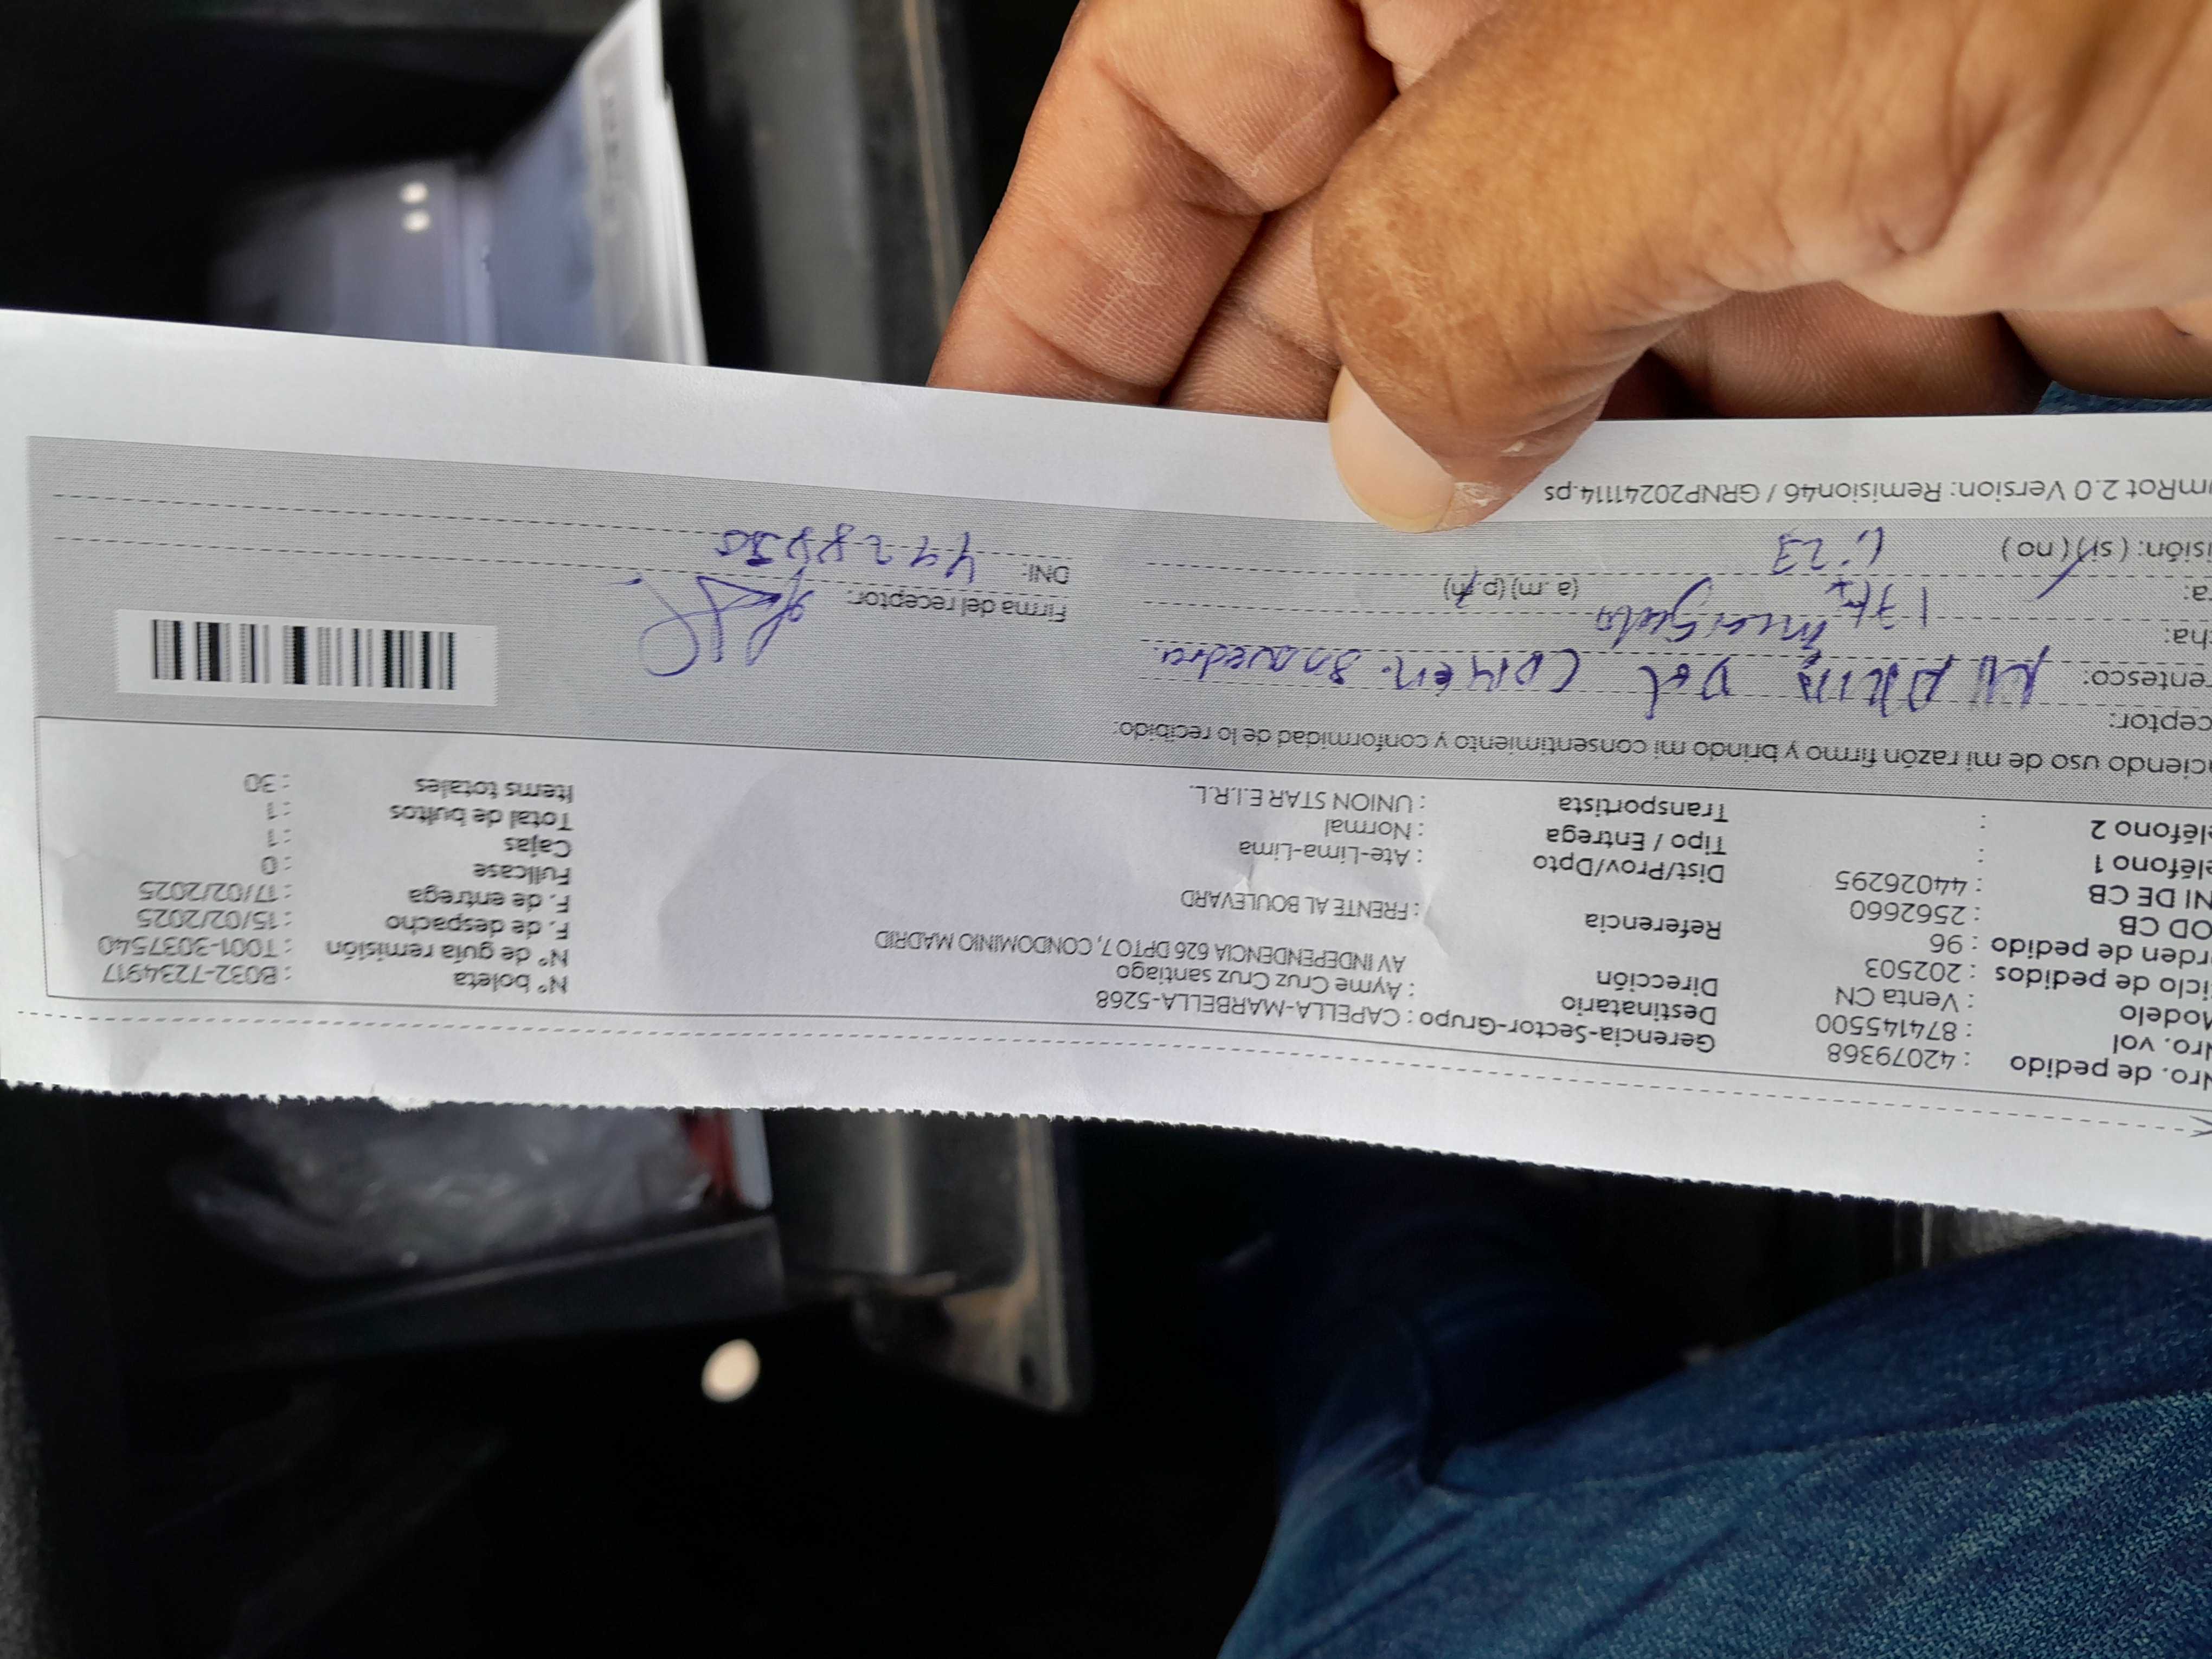 Nro. de pedido : 42079368
Nro. vol : 874145500
Modelo : Venta CN
iclo de pedidos : 202503
rden de pedido : 96
OD CB : 2562660
NI DE CB : 44026295
eléfono 1 :
eléfono 2 :
Gerencia-Sector-Grupo : CAPELLA-MARBELLA-5268
Destinatario : Ayme Cruz Cruz santiago
Dirección AV INDEPENDENCIA 626 DPTO 7, CONDOMINIO MADRID
Referencia : FRENTE AL BOULEVARD
Dist/Prov/Dpto : Ate-Lima-Lima
Tipo / Entrega : Normal
Transportista : UNION STAR E.I.R.L.
N° boleta : B032-7234917
N° de guía remisión : T001-3037540
F. de despacho : 15/02/2025
F. de entrega : 17/02/2025
Fullcase : 0
Cajas : 1
Total de bultos : 1
Items totales : 30
ciendo uso de mi razón firmo y brindo mi consentimiento y conformidad de lo recibido:
ceptor: Del Carmen Saavedra
entesco:
cha:
ra: (a .m) (p.m)
isión: ( si ) ( no )
Firma del receptor:
DNI:
mRot 2.0 Version: Remision46 / GRNP20241114.ps